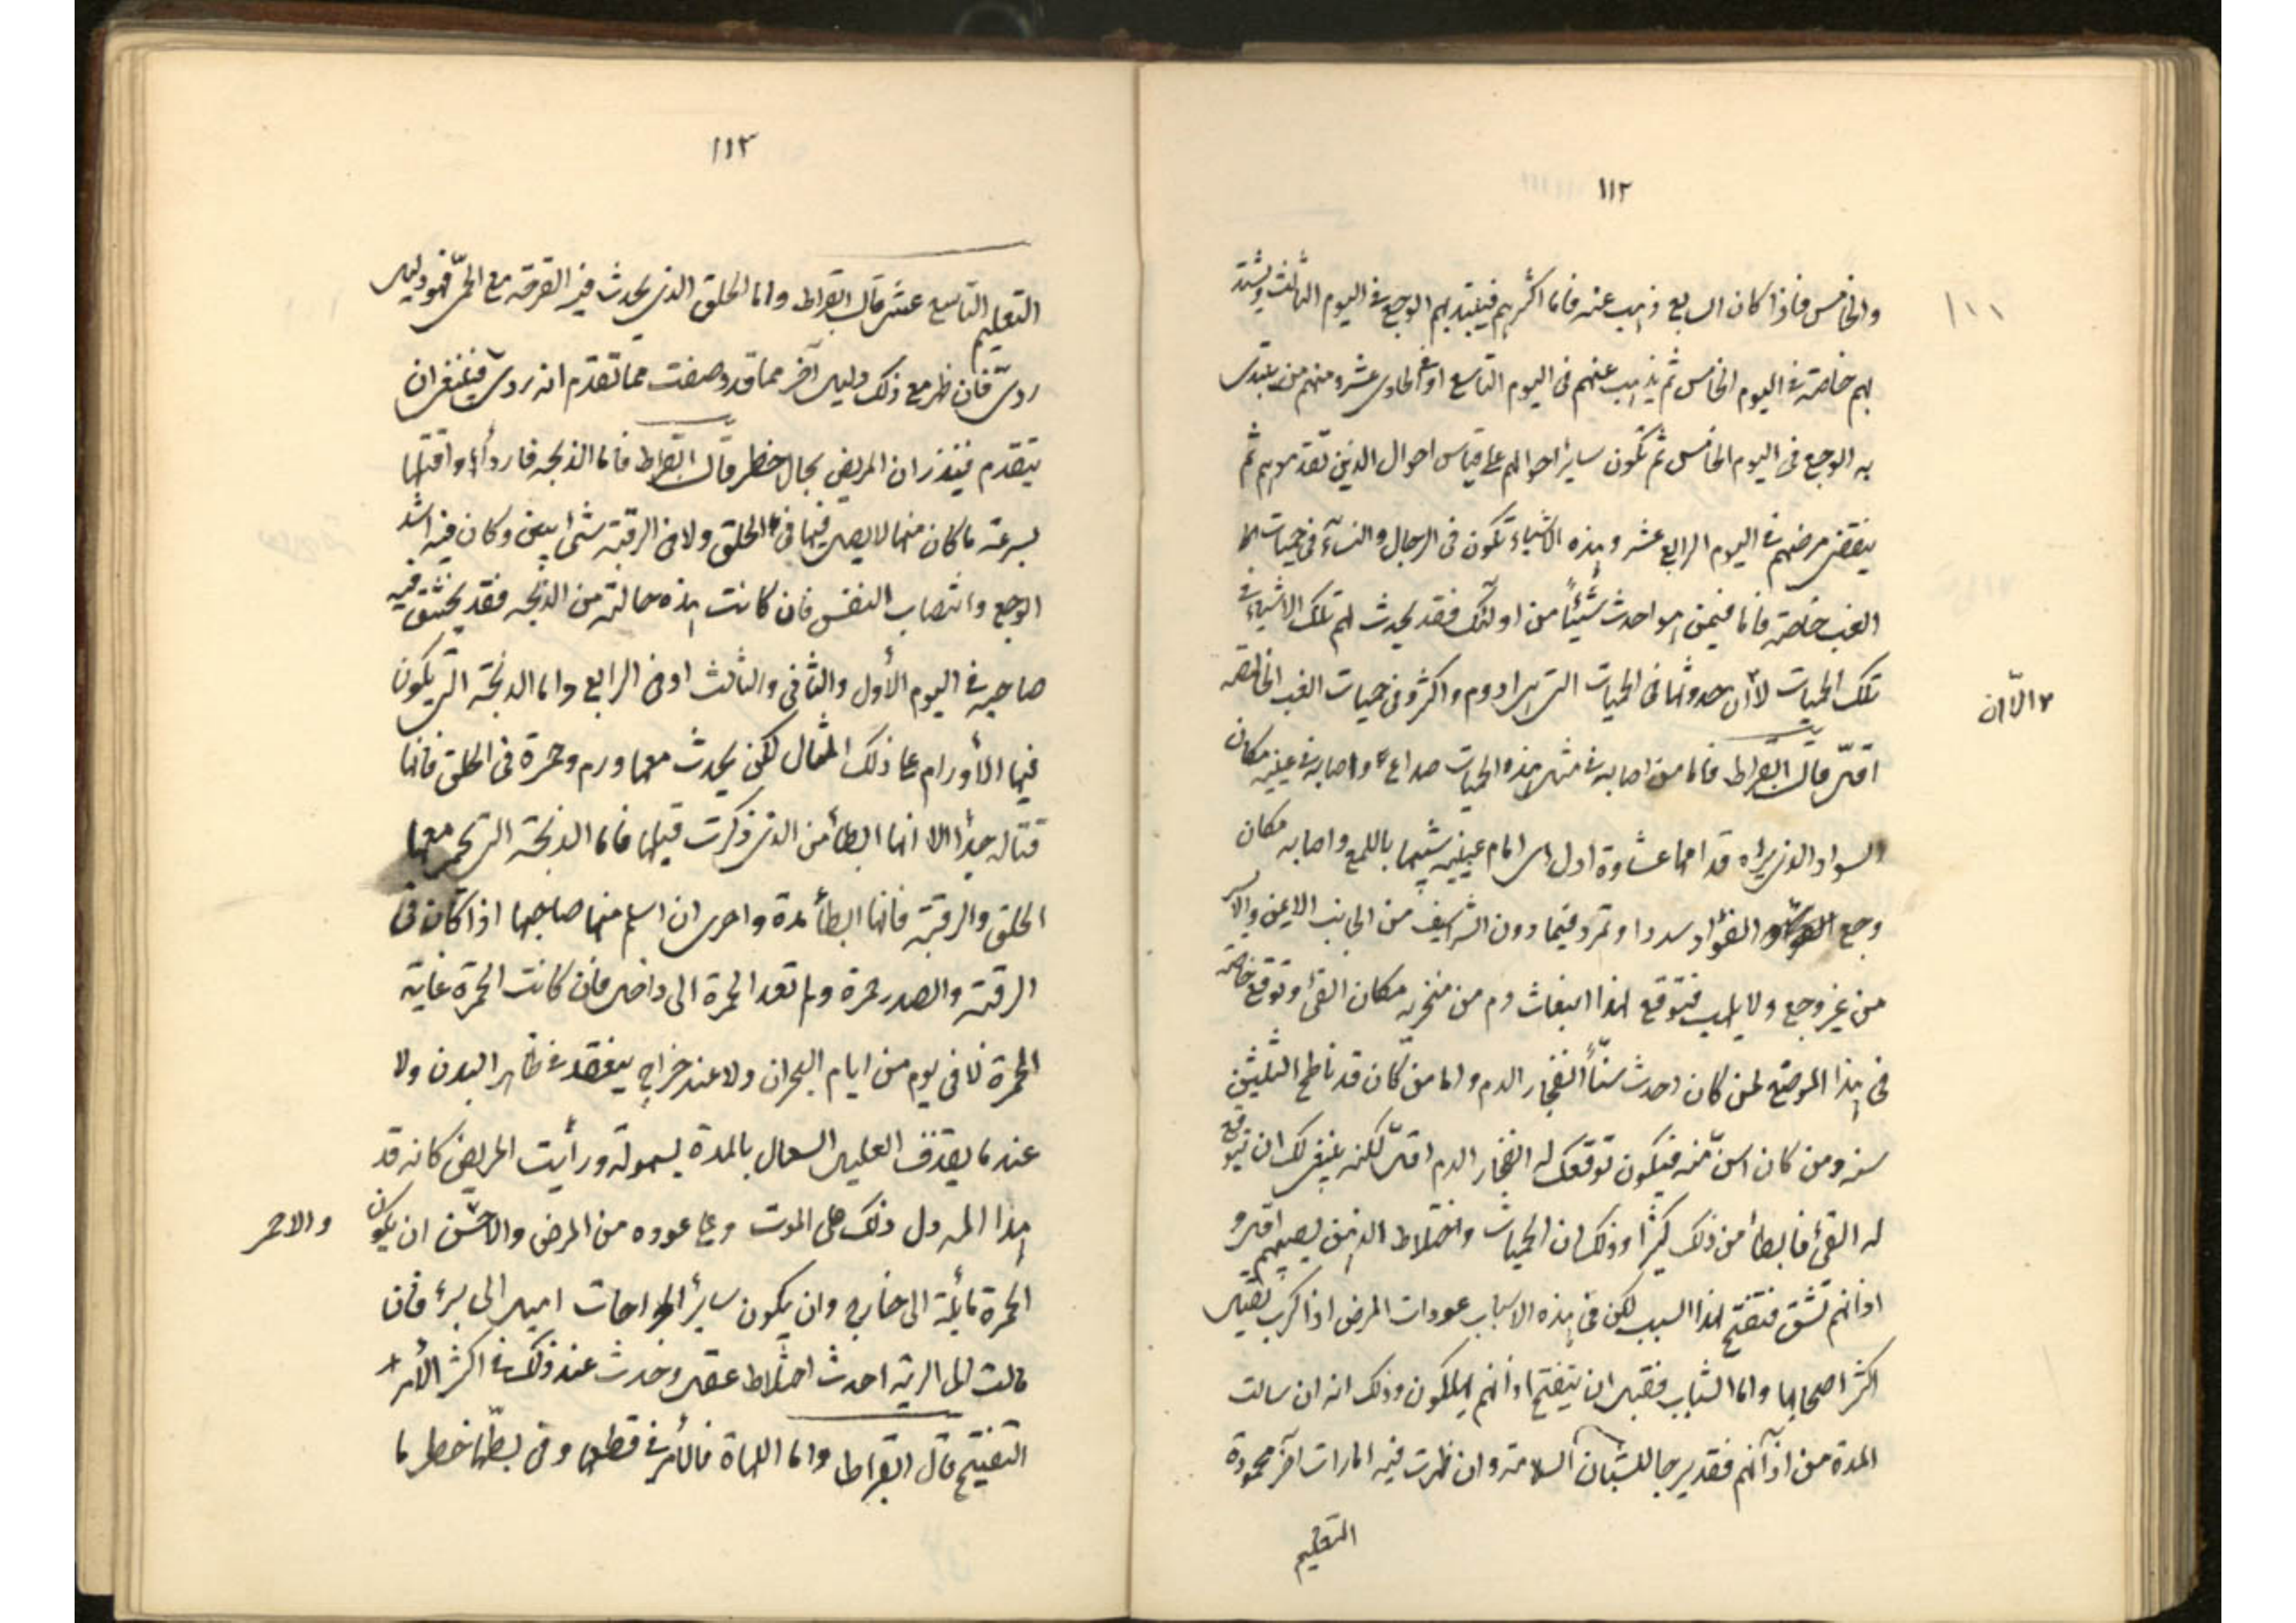 ١١٢
والخامس فاذا كان السابع ذهب عنه فاما اكثرهم فيبتدئ بهم الوجع فى اليوم الثالث ويشتد
بهم خاصة فى اليوم الخامس ثم يذهب عنهم فى اليوم التاسع او فى الحادى عشر ومنهم من يبتدى
به الوجع فى اليوم الخامس ثم تكون ساير احوالهم على قياس احوال الذين تقدموهم ثم
ينقضى مرضهم فى اليوم الرابع عشر وهذه الاشياء تكون فى الرجال والنسآء فى حميات
الغب خاصة فاما فيمن هو احدث شيئاً من اولئك فقد يحدث لهم تلك الاشياء فى
تلك الحميات لاأن حدوثها فى الحميات التى هى ادوم واكثر وفى حميات الغب الخالصة
٧ الاّ ان
اقلّ قال ابقراط فاما من اصابه فى مثل هذه الحميات صداع واصابه فى عينيه مكان
السواد الذى يراه قدامها غشاوة اول اى امام عينيه شبيها باللمع واصابه مكان
وجع الفؤاد سددا وتمدد فيما دون الشراسيف من الجانب الايمن والايسر
من غير وجع ولا تلهب فتوقع لهذا انبعاث دم من منخريه مكان القئ وتوقع خاصة
فى هذا الموضع لمن كان احدث سنّاً انفجار الدم واما من كان قد ناطح الثلثين
سنه ومن كان اسنّ منه فيكون توقعك له انفجار الدم اقلّ لكنه ينبغى لك ان تتوقع
له القئ فابطأ من ذلك كثيرا وذلك ان الحميات واختلاط الذهن يصيبهم اقل و
اذانهم تنشق فتنفتح لهذا السبب لكن فى هذه الاسباب عودات المرض اذا كرب تقتل
اكثر اصحابها واما الشباب فقبل ان يتفتح اذانهم يهلكون وذلك انه ان سالت
المدة من اذآنهم فقد يرجا للشبان السلامة وان ظهرت فيه امارات آخر محمودة
التعليم
١١٣
التعليم التاسع عشر قال ابقراط واما الحلق الذى يحدث فيه القرحه مع الحمّى فهو دليل
ردىّ فان ظهر مع ذلك دليل آخر مما قد وصفت مما تقدم انه ردى فينبغى ان
يتقدم فينذر ان المريض بحال خطر قال ابقراط فاما الذبحه فاردأها واقتلها
بسرعة ما كان منها لا يتبين فيها فى الحلق ولا فى الرقبة شئ ابين وكان فيه اشد
الوجع وانتصاب النفس فان كانت هذه حالته من الذبحه فقد يختنق فيه
صاحبه فى اليوم الأول والثانى والثالث او فى الرابع واما الذبحة التى يكون
فيها الأورام على ذلك المثال لكن يحدث معها ورم وحمرة فى الحلق فانها
قتاله جداً الا انها ابطأ من الذى ذكرت قبلها فاما الذبحة التى تحمر معها
الحلق والرقبة فانها ابطأ مدة واحرى ان اسلم منها صاحبها اذا كان فى
الرقبة والصدر حمرة ولم تعد الحمرة الى داخل فان كانت الحمرة غاية
الحمرة لا فى يوم من ايام البحران ولا عند خراج ينعقد فى ظاهر البدن ولا
عند ما يقذف العليل السعال بالمدة بسهولة ورأيت المريض كانه قد
هذا المه دل ذلك على الموت وعلى عوده من المرض والاحسن ان يكون
والاحمر
الحمرة مائلة الى خارج وان يكون ساير الخراجات اميل الى برء فان
مالت الى الرية احدث اختلاط عقل وحدث عند ذلك فى اكثر الأمر
التفتيح قال ابقراط واما اللهاة فالأمر فى قطعها وفى بطّها خطر ما